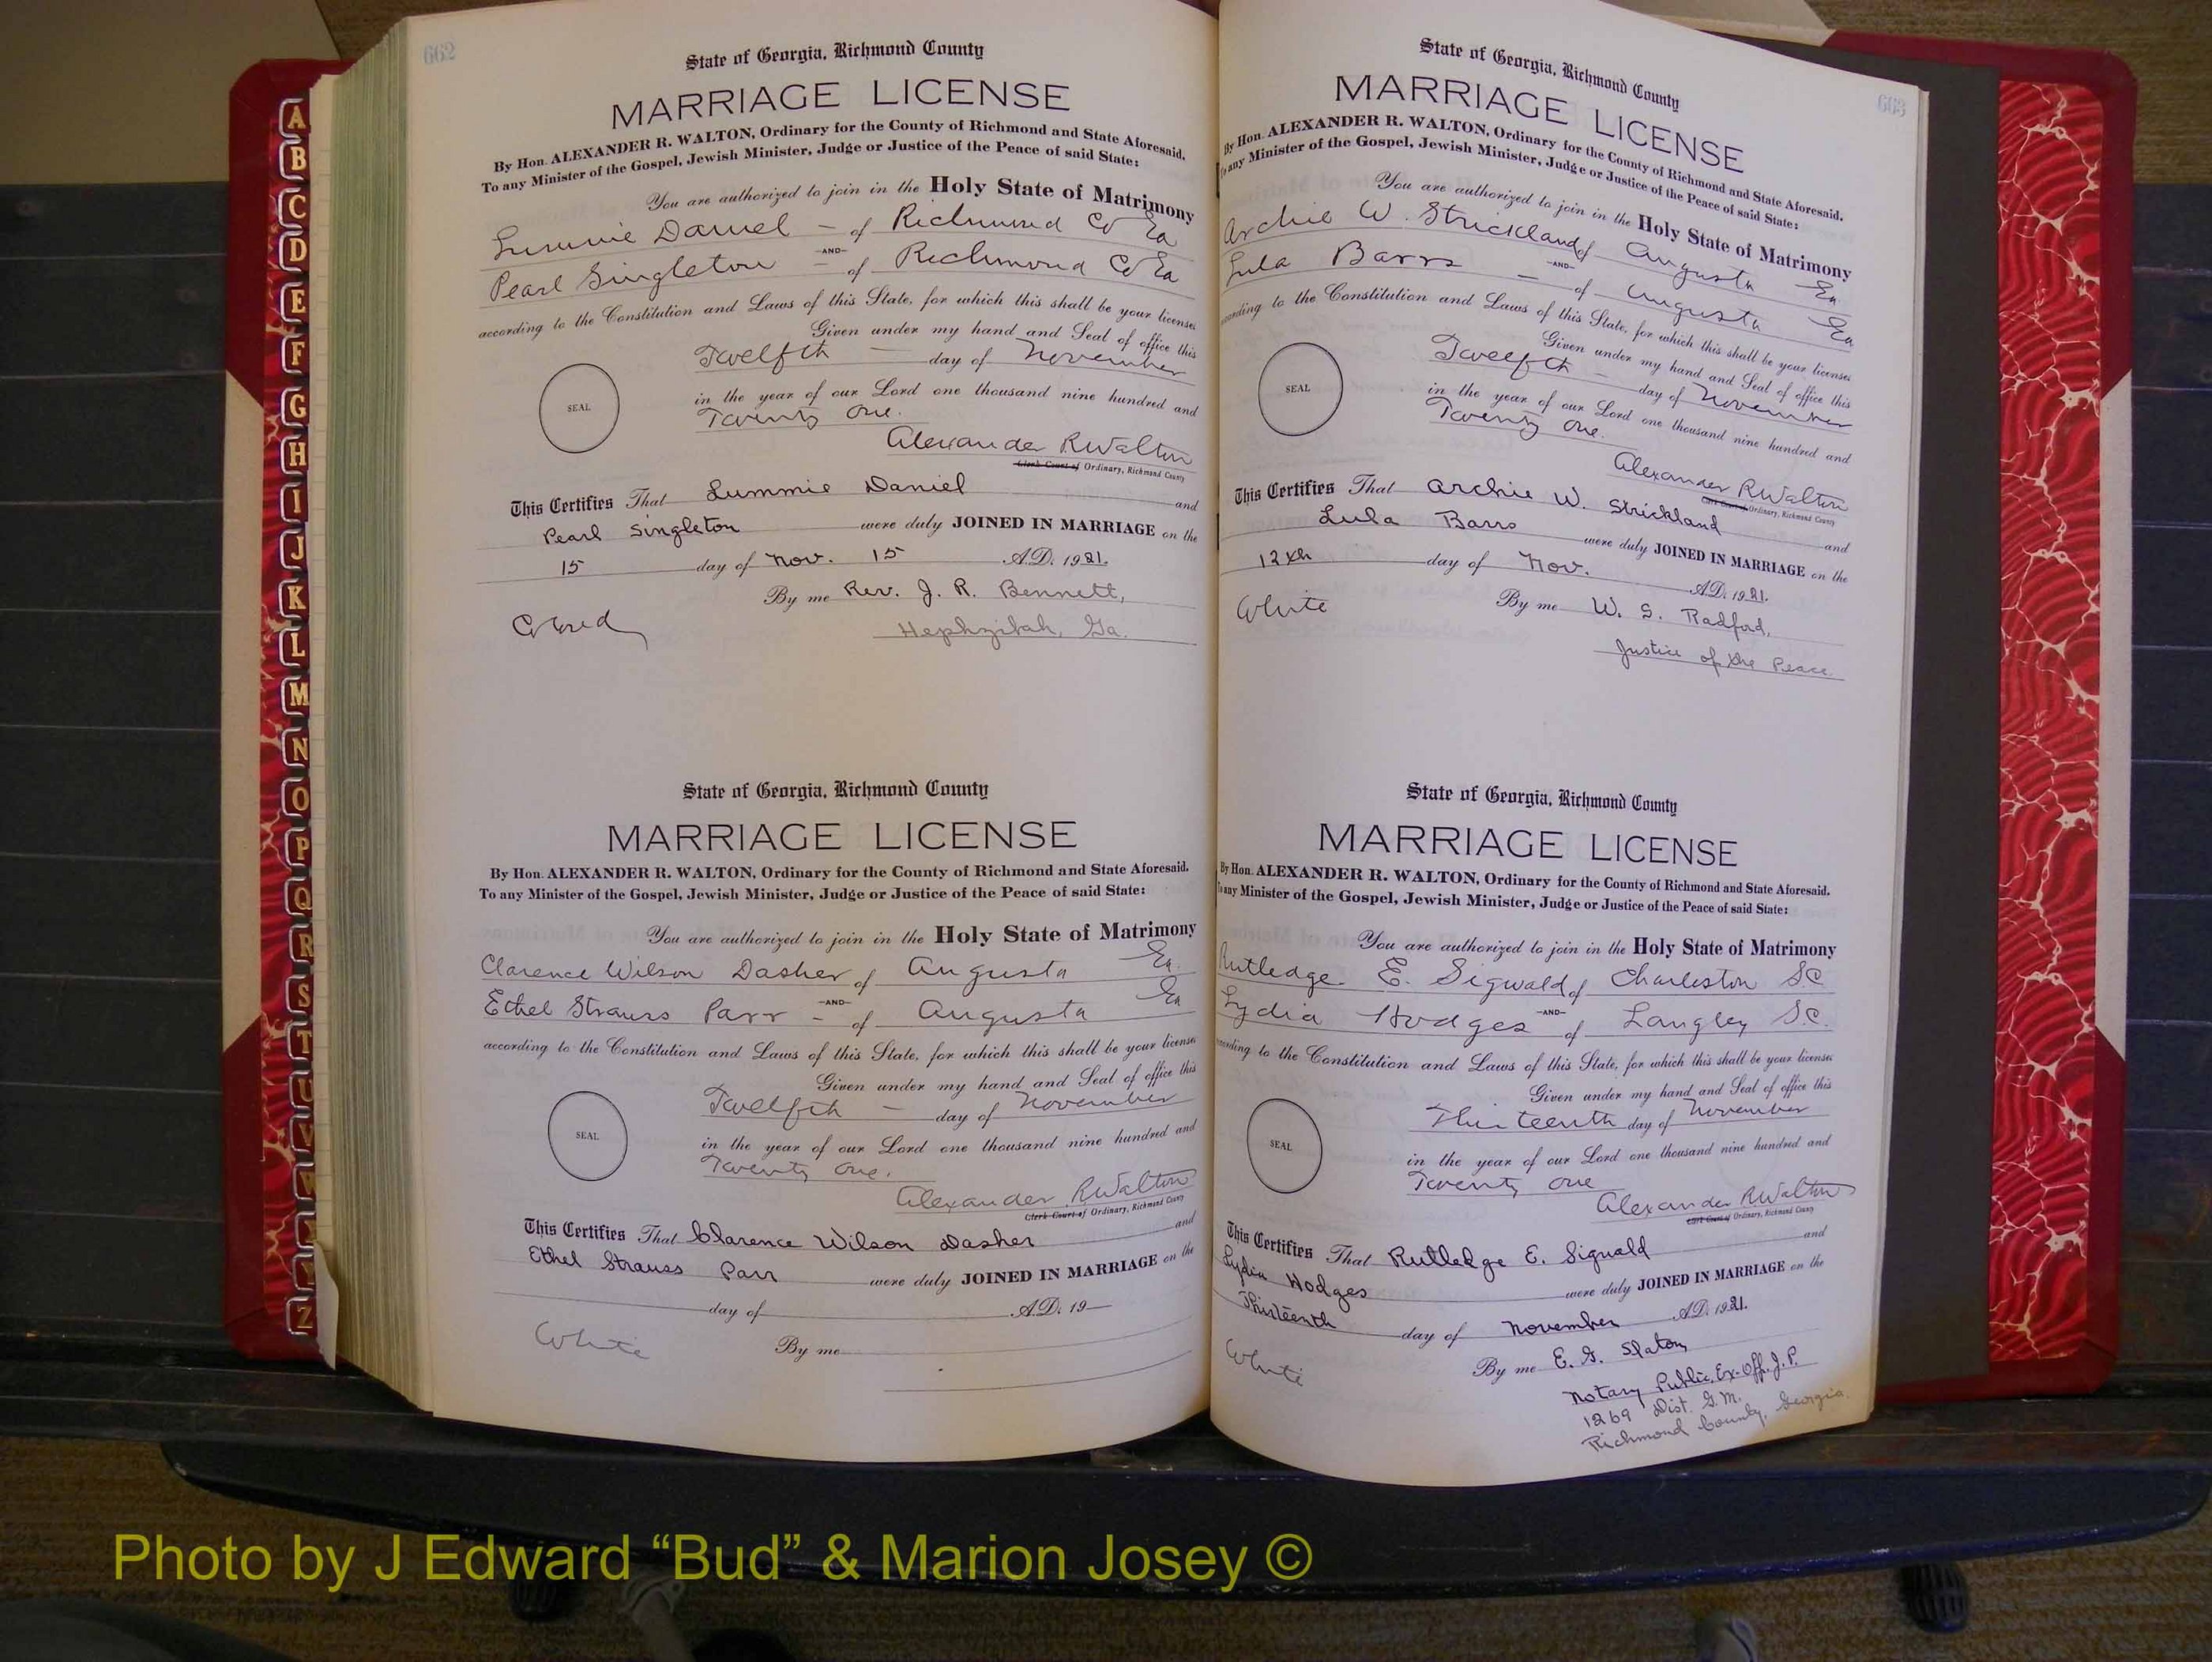 A
B
C
D
E
F
G
H
I
J
K
L
M
N
O
P
Q
R
S
T
U
V
W
Z
662
State of Georgia, Richmond County
MARRIAGE LICENSE
By Hon. ALEXANDER R. WALTON, Ordinary for the County of Richmond and State Aforesaid.
To any Minister of the Gospel, Jewish Minister, Judge or Justice of the Peace of said State:
You are authorized to join in the Holy State of Matrimony
Lummie Daniel - of Richmond Co Ga
-AND-
Pearl Singleton - of Richmond Co Ga
according to the Constitution and Laws of this State, for which this shall be your license
Given under my hand and Seal of office this
Twelfth - day of November
SEAL
in the year of our Lord one thousand nine hundred and
Twenty One.
Alexander R Walton
Clerk Court of Ordinary, Richmond County
This Certifies That Lummie Daniel and
Pearl Singleton were duly JOINED IN MARRIAGE on the
15 day of Nov. 15 A.D. 1921.
By me Rev. J. R. Bennett,
Colored
Hephzibah, Ga.
State of Georgia, Richmond County
MARRIAGE LICENSE
By Hon. ALEXANDER R. WALTON, Ordinary for the County of Richmond and State Aforesaid.
To any Minister of the Gospel, Jewish Minister, Judge or Justice of the Peace of said State:
You are authorized to join in the Holy State of Matrimony
Clarence Wilson Dasher of Augusta Ga.
-AND-
Ethel Strauss Parr - of Augusta Ga
according to the Constitution and Laws of this State, for which this shall be your license
Given under my hand and Seal of office this
Twelfth - day of November
SEAL
in the year of our Lord one thousand nine hundred and
Twenty One.
Alexander R Walton
Clerk Court of Ordinary, Richmond County
This Certifies That Clarence Wilson Dasher and
Ethel Strauss Parr were duly JOINED IN MARRIAGE on the
day of A.D. 19
White
By me
663
State of Georgia, Richmond County
MARRIAGE LICENSE
By Hon. ALEXANDER R. WALTON, Ordinary for the County of Richmond and State Aforesaid.
To any Minister of the Gospel, Jewish Minister, Judge or Justice of the Peace of said State:
You are authorized to join in the Holy State of Matrimony
Archie W. Strickland of Augusta Ga
-AND-
Lula Barrs - of Augusta Ga
according to the Constitution and Laws of this State, for which this shall be your license
Given under my hand and Seal of office this
Twelfth - day of November
SEAL
in the year of our Lord one thousand nine hundred and
Twenty One.
Alexander R Walton
Clerk Court of Ordinary, Richmond County
This Certifies That Archie W. Strickland and
Lula Barrs were duly JOINED IN MARRIAGE on the
12th day of Nov. A.D. 1921.
White
By me W. S. Radford,
Justice of the Peace
State of Georgia, Richmond County
MARRIAGE LICENSE
By Hon. ALEXANDER R. WALTON, Ordinary for the County of Richmond and State Aforesaid.
To any Minister of the Gospel, Jewish Minister, Judge or Justice of the Peace of said State:
You are authorized to join in the Holy State of Matrimony
Rutledge E. Sigwald of Charleston SC
-AND-
Lydia Hodges of Langley S.C.
according to the Constitution and Laws of this State, for which this shall be your license
Given under my hand and Seal of office this
Thirteenth day of November
SEAL
in the year of our Lord one thousand nine hundred and
Twenty One
Alexander R Walton
Clerk Court of Ordinary, Richmond County
This Certifies That Rutledge E. Sigwald and
Lydia Hodges were duly JOINED IN MARRIAGE on the
Thirteenth day of November A.D. 1921.
White
By me E. G. Slaton
Notary Public, Ex-Off. J. P.
1269 Dist. G. M.
Richmond County, Georgia.
Photo by J Edward “Bud” & Marion Josey ©